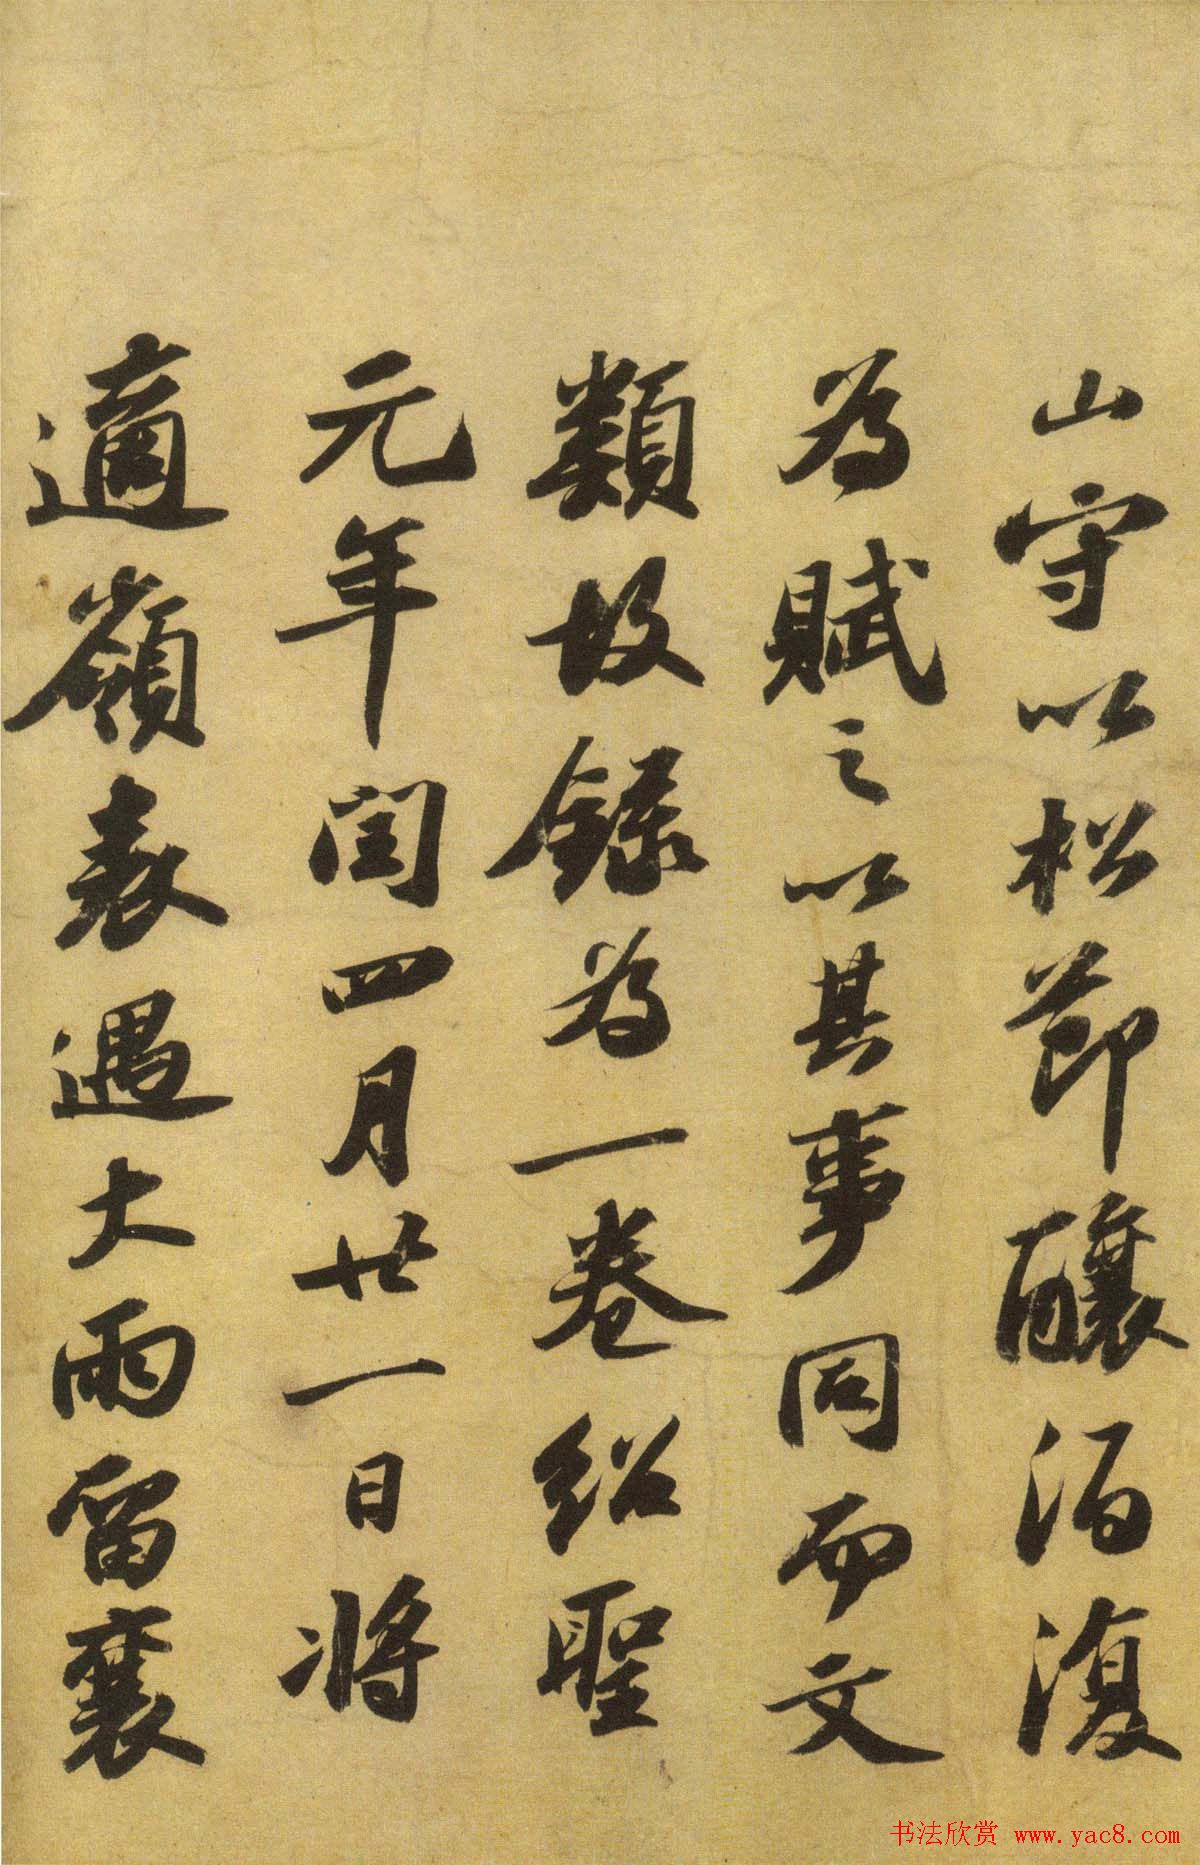 山守以松節釀酒復
為賦之以其事同而文
類故録為一卷紹聖
元年閏四月廿一日將
適嶺表遇大雨留襄
书法欣赏 www.yac8.com